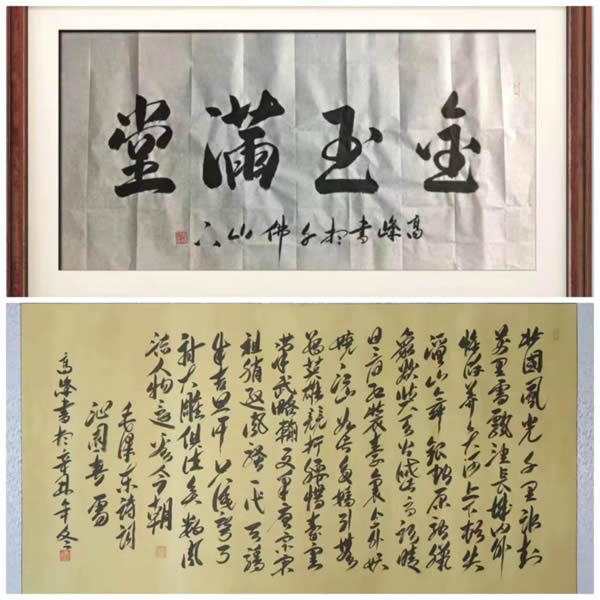 金玉满堂
高峰书于千佛山下
北國風光千里冰封
万里雪飘望长城内外
惟馀莽莽大河上下顿失
滔滔山舞银蛇原驰蜡
象欲与天公试比高须晴
日看红装素裹分外妖
娆江山如此多娇引无数
英雄竞折腰惜秦皇
汉武略输文采唐宗宋
祖稍逊风骚一代天骄
成吉思汗只识弯弓
射大雕俱往矣数风
流人物还看今朝
毛泽东诗词
沁园春雪
高峰书于辛丑年冬